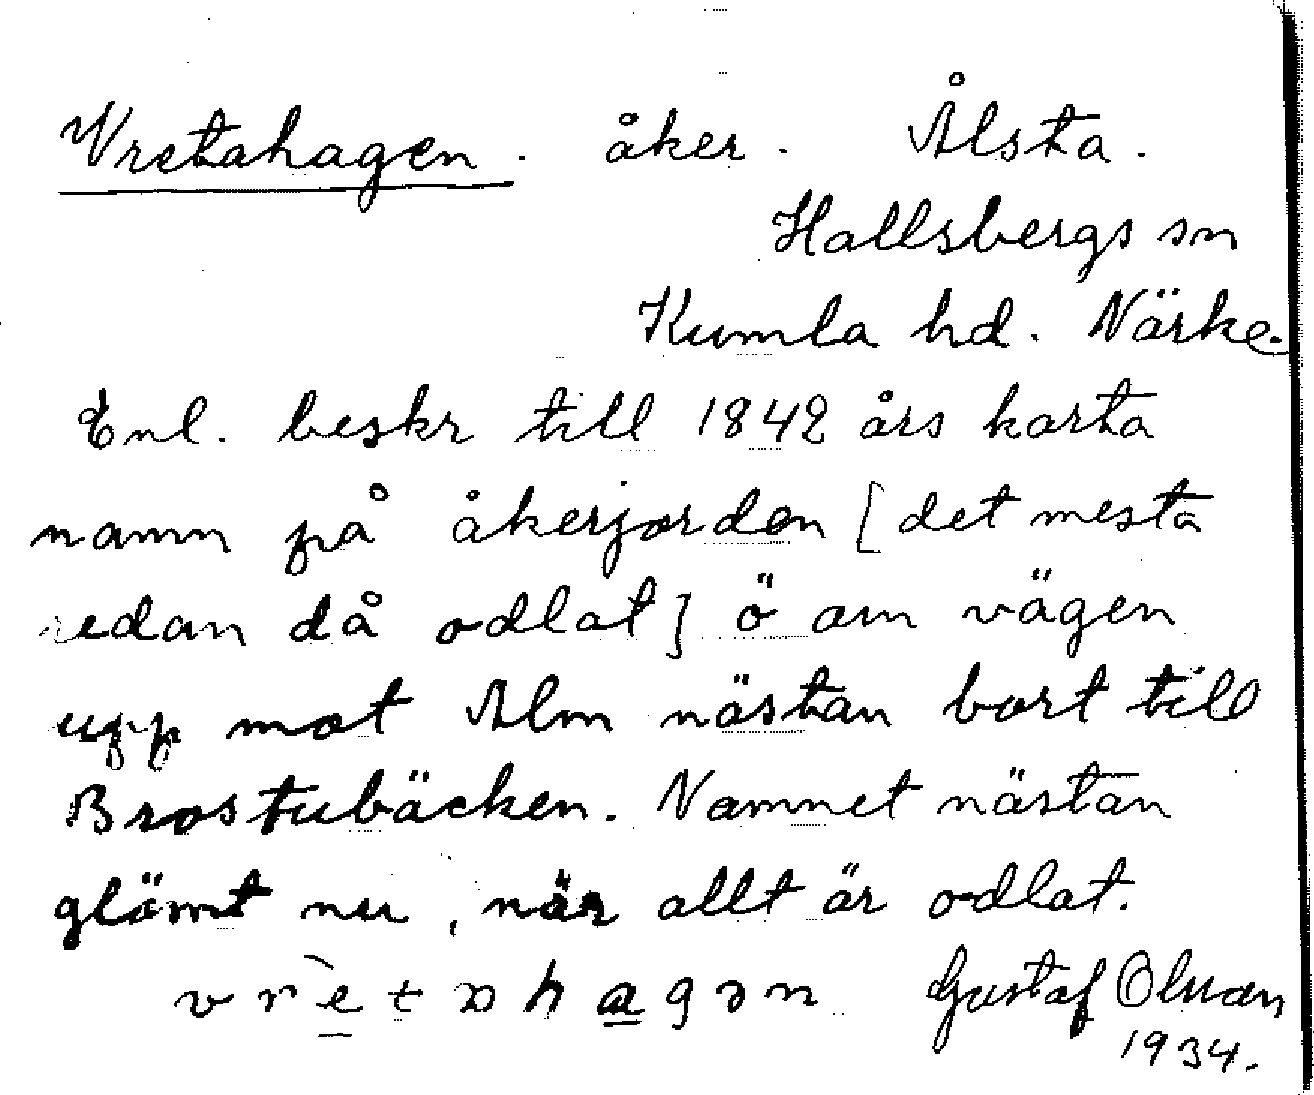 Vretahagen. åker. Ålsta.
Hallsbergs sn
Kumla hd. Närke.
Enl. beskr till 1842 års karta
namn på åkerjorden [det mesta
sedan då odlat] ö om vägen
upp mot Alm nästan bort till
Brostubäcken. Namnet nästan
glömt nu, när allt är odlat.
vretahagən Gustaf Olsson
1934.